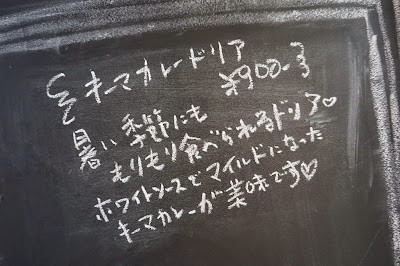 キーマカレードリア
¥900-
暑い季節にも
もりもり食べられるドリア♡
ホワイトソースでマイルドになった
キーマカレーが美味です♡